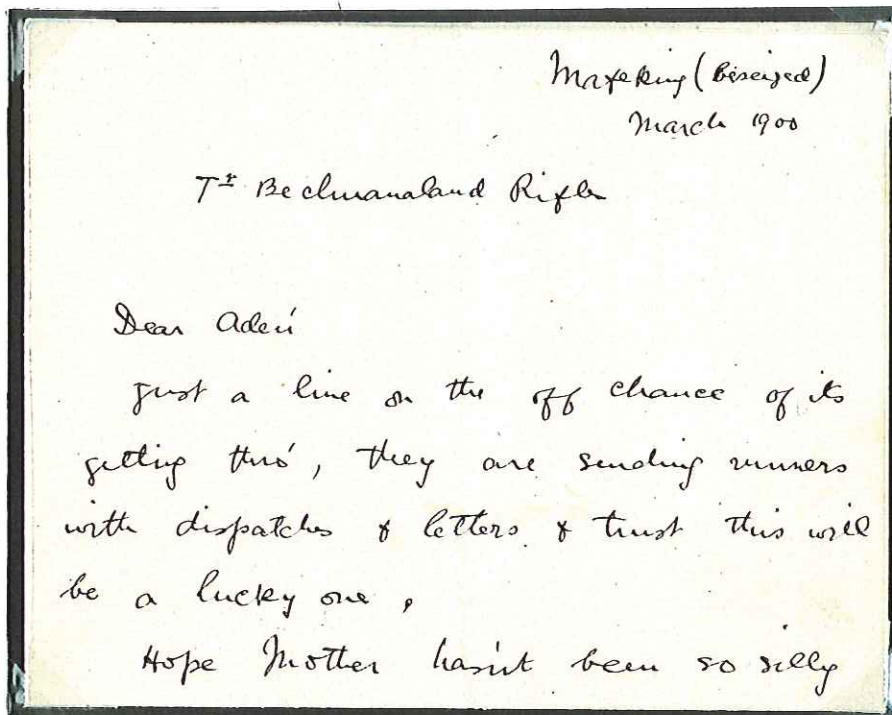 Mafeking (besieged)
March 1900
Tr Bechuanaland Rifles
Dear
Just a line on the off chance of its
getting thro', they are sending runners
with dispatches & letters & trust this will
be a lucky one,
Hope Mother hasn't been so silly